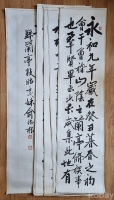 永和九年歲在癸丑暮春之初
會于會稽山陰之蘭亭脩禊事
也羣賢畢至少長咸集此地有
蘭亭敘